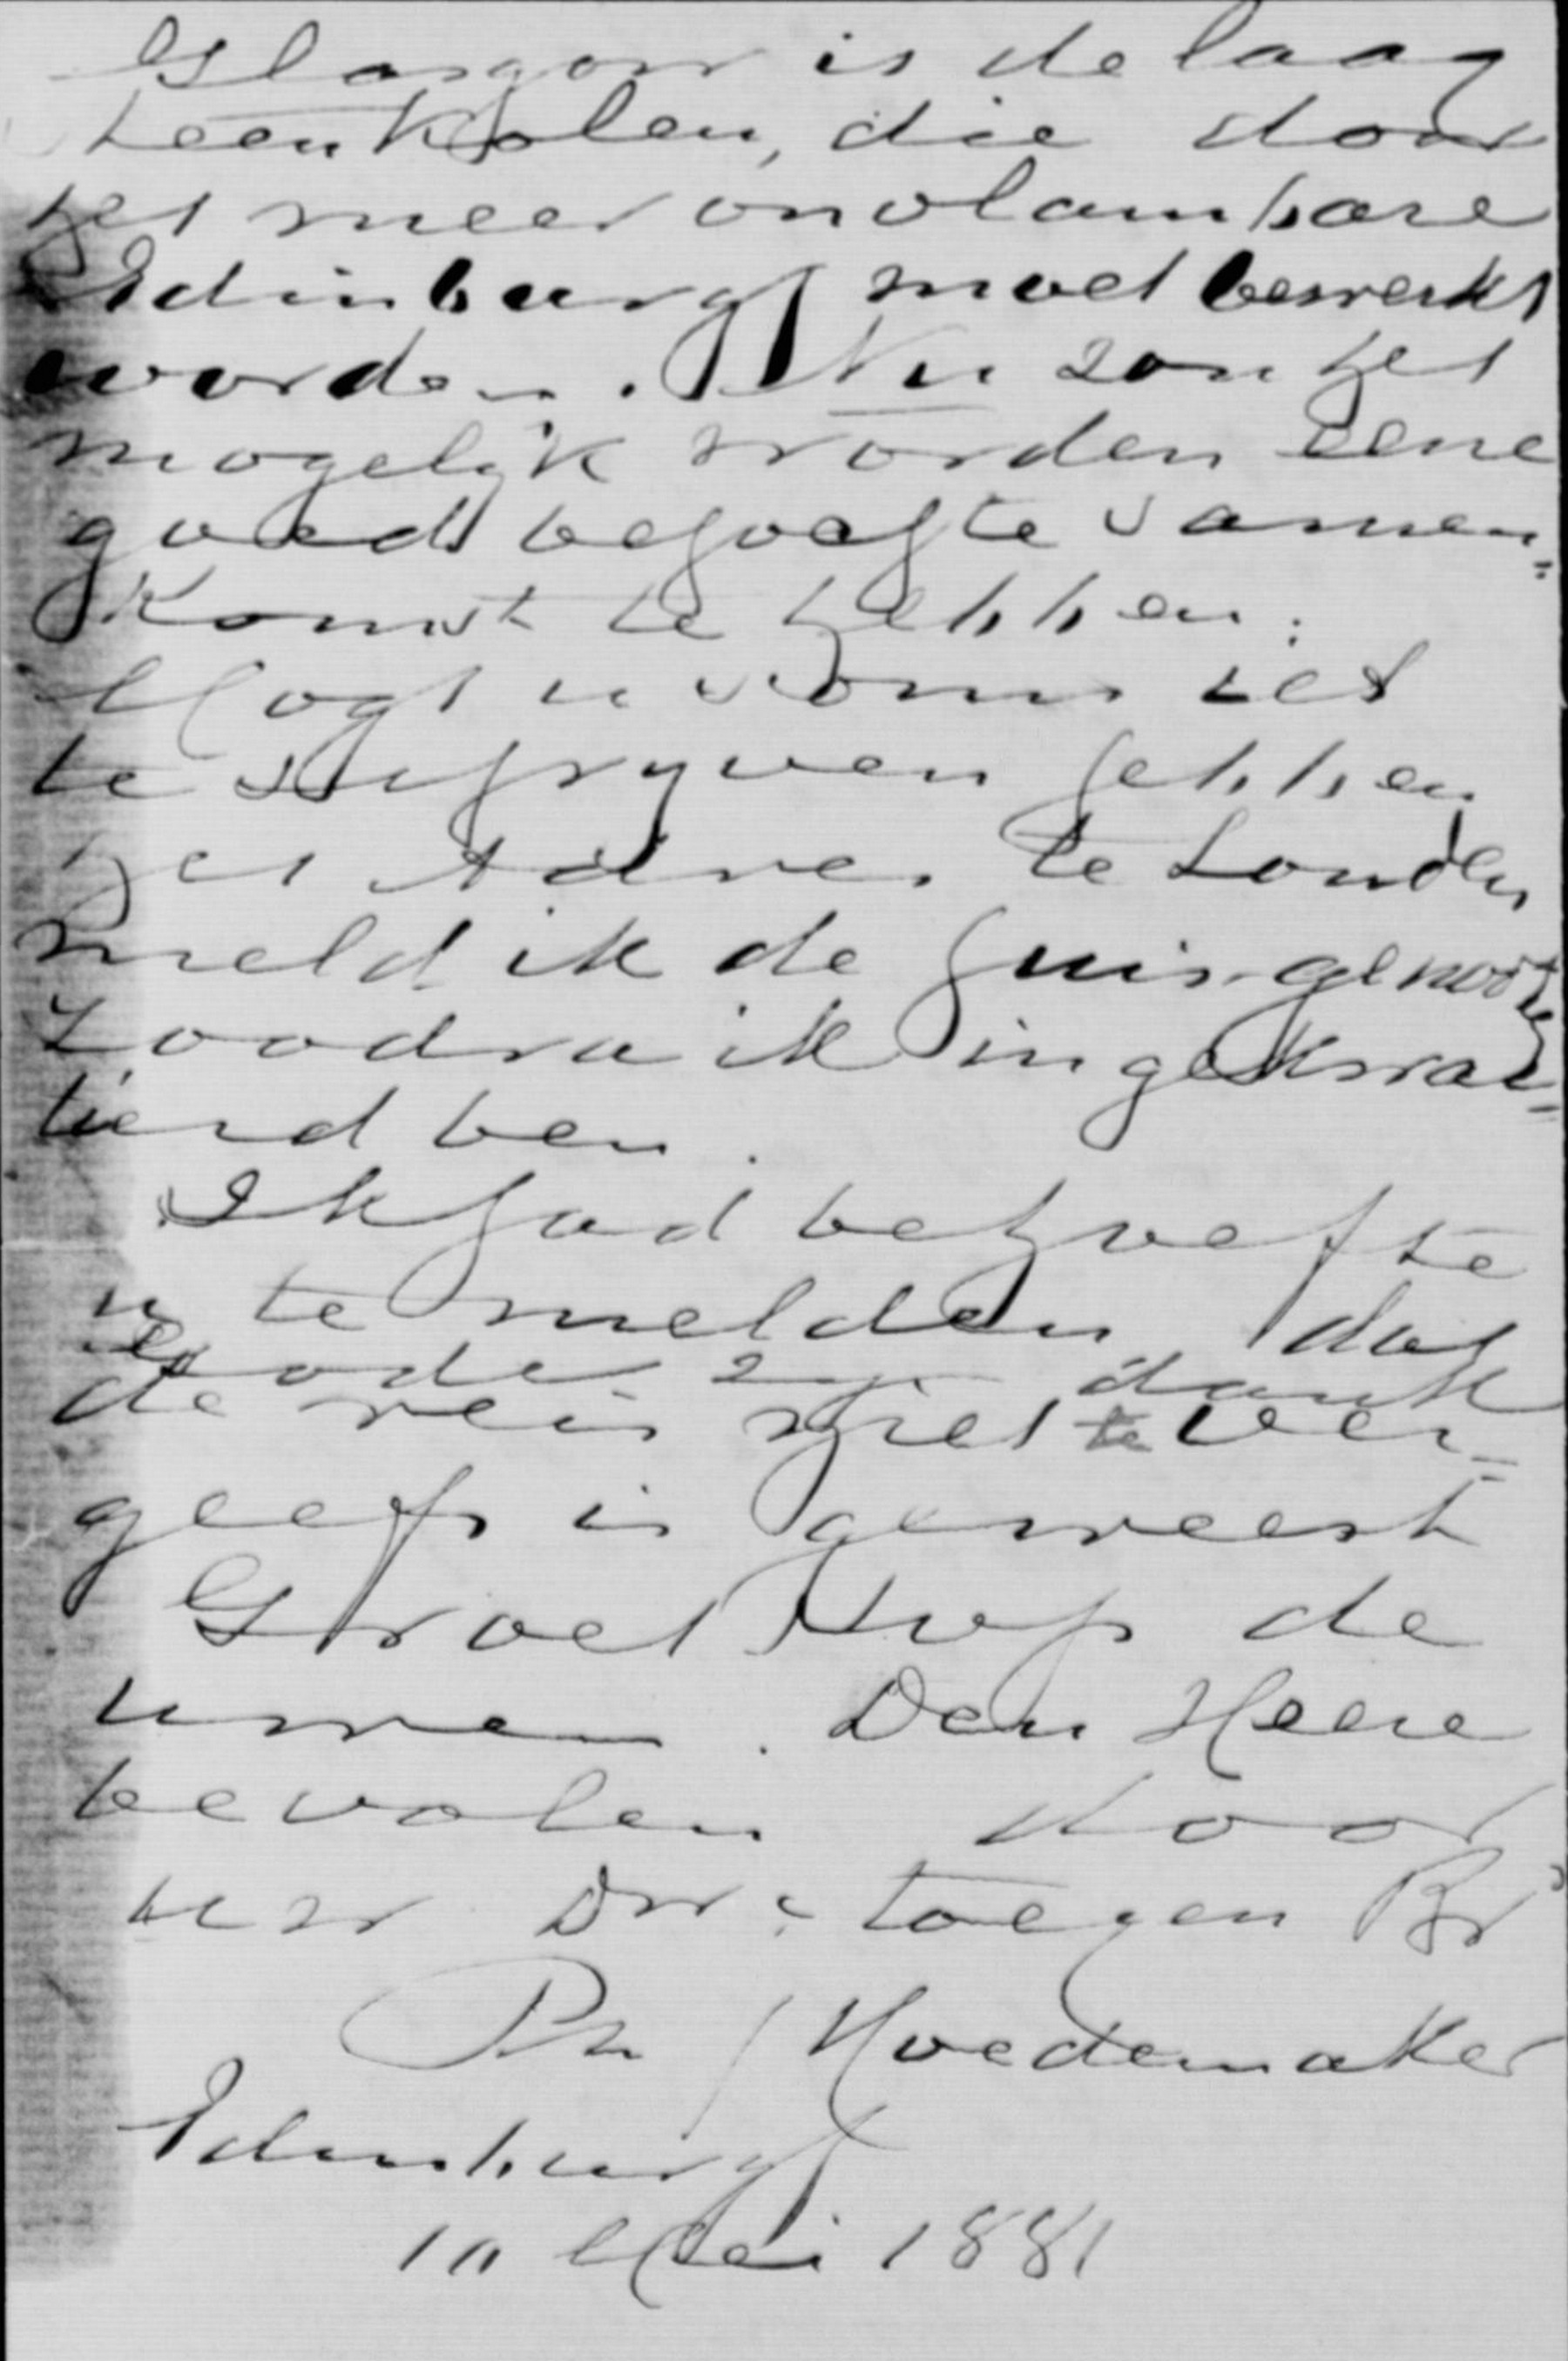 Glasgow is de laag
steenkolen, die door
het meer onvlambare
Edinburgh moet bewerkt
worden. Nu zou het
mogelijk worden eene
goed bezochte samen=
komst te hebben.
Mogt u soms iets
te schryven hebben
het adres te Londen
meld ik de huisgenooten
zoodra ik ingekwar=
tierd ben.
Ik had behoefte
u te melden dat
Gode zij dank
de reis niet te ver=
geefs is geweest
Groet de
uwen. Den Heere
bevolen door
uw toegen Br
Ph J Hoedemaker
Edinburgh
10 Mei 1881